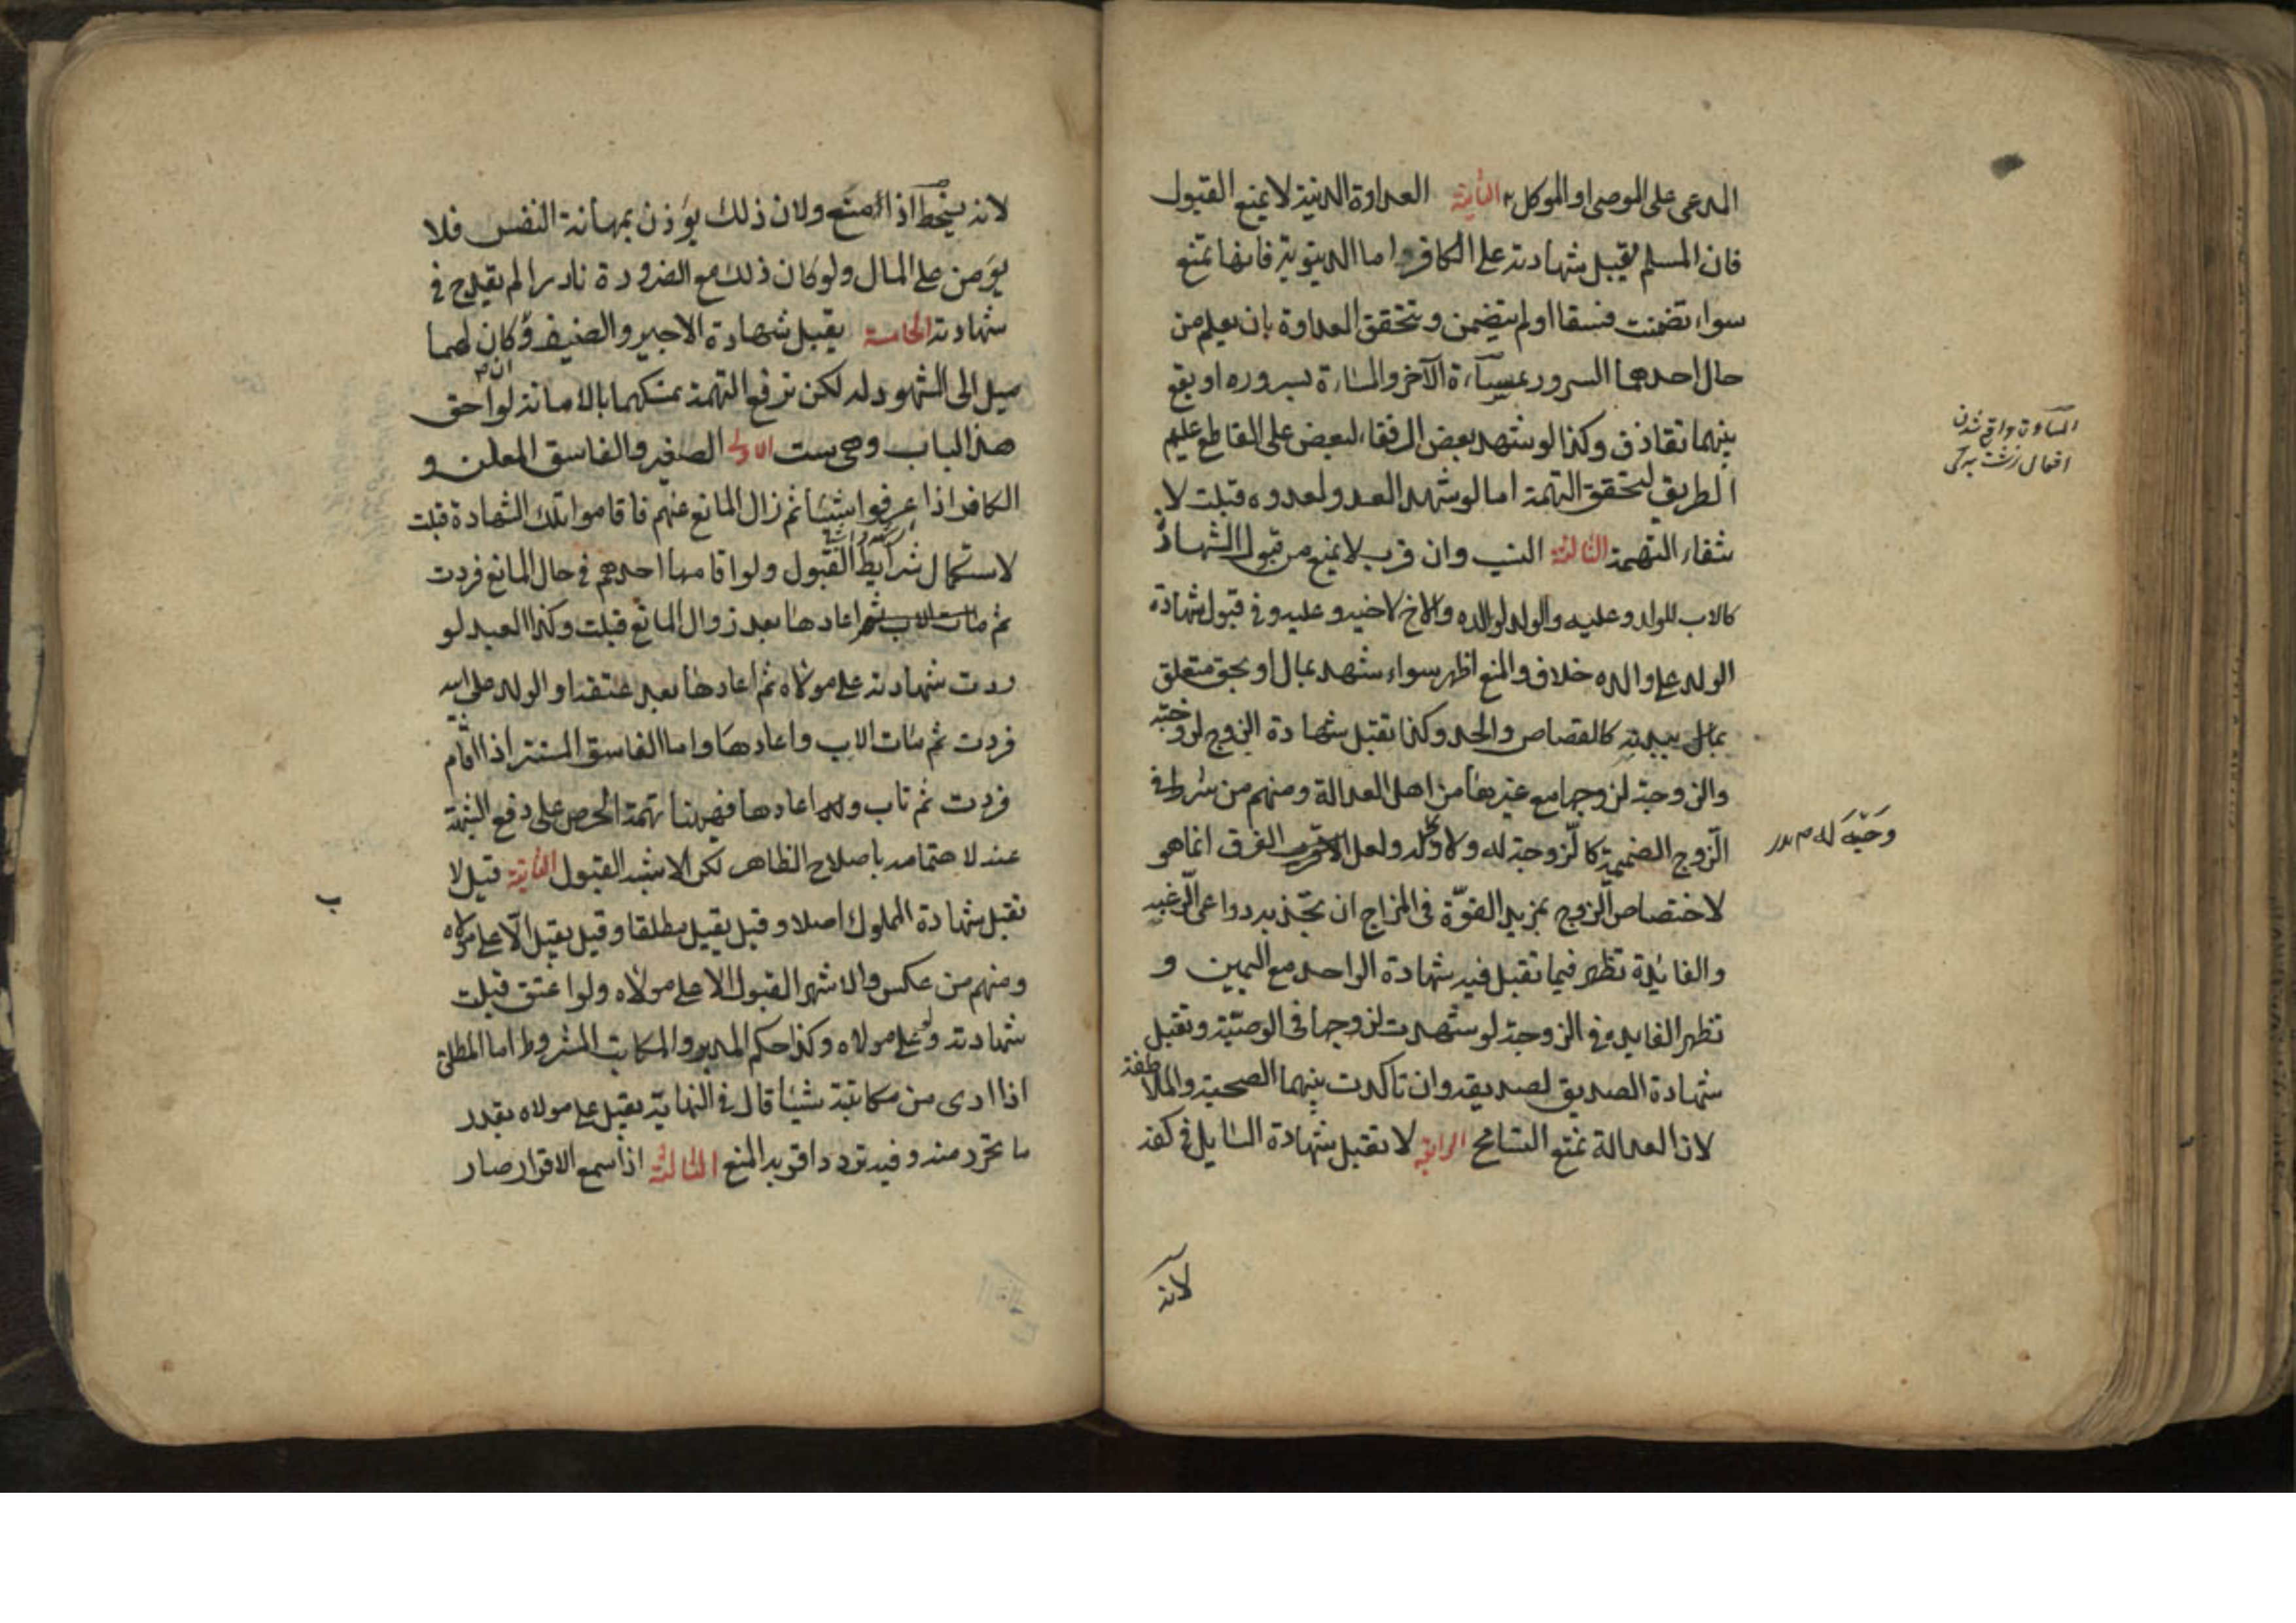 المدعى على الموصى او الموكل الثانية العداوة الدينية لا يمنع القبول
فان المسلم يقبل شهادته على الكافر واما الدينوية فانها تمنع
سواء تضمنت فسقا او لم يتضمن و يتحقق العداوة بان يعلم من
حال احدهما السرور بمساءة الآخر والمساءة بسروره او يقع
بينهما تقاذف وكذا لو شهد بعض الرفقاء لبعض على القاطع عليهم
الطريق لتحقق التهمة اما لو شهد العدو لعدوه قبلت لا
نتفاء التهمة الثالثة النسب وان قرب لا يمنع من قبول الشهادة
كالاب للولد وعليه والولد لوالده والاخ لاخيه وعليه وفي قبول شهادة
الولد على والده خلاف والمنع اظهر سواء شهد بمال او بحق متعلق
ببدنه كالقصاص والحد وكذا تقبل شهادة الزوج لزوجته
والزوجة لزوجها مع غيرها من اهل العدالة ومنهم من شرط في
الزوج الضميمة كالزوجة ولا وجه له ولعل الفرق انما هو
لاختصاص الزوج بمزيد القوة في المزاج ان تجذبه دواعى الرغبة
والفائدة تظهر فيما تقبل فيه شهادة الواحد مع اليمين و
تظهر الفايدة في الزوجة لو شهدت لزوجها في الوصية وتقبل
شهادة الصديق لصديقه وان تاكدت بينهما الصحبة والملاطفة
لان العدالة تمنع التسامح الرابعة لا تقبل شهادة السايل في كفه
لانه
المساءة واقع شدن
افعال زشت به كسى
لانه يسخط اذا منع ولان ذلك يؤذن بمهانة النفس فلا
يؤمن على المال ولو كان ذلك مع الضرورة نادرا لم يقدح في
شهادته الخامسة يقبل شهادة الاجير والضيف وان كان لهما
ميل الى المشهود له لكن ترفع التهمة تمسكهما بالامانة لواحق
هذا الباب وهى ست الاولى الصغير والفاسق المعلن و
الكافر اذا عرفوا شيئا ثم زال المانع عنهم فاقاموا تلك الشهادة قبلت
لاستكمال شرايط القبول ولو اقامها احدهم في حال المانع فردت
ثم اعادها بعد زوال المانع قبلت وكذا العبد لو
ردت شهادته على مولاه ثم اعادها بعد عتقه او الولد على ابيه
فردت ثم مات الاب واعادها واما الفاسق المستتر اذا اقام
فردت ثم تاب واعادها فهيهنا تهمة الحرص على دفع الشبهة
عنه لاهتمامه باصلاح الظاهر لكن الاشبه القبول الثانية قيل لا
تقبل شهادة المملوك اصلا وقيل يقبل مطلقا وقيل يقبل الا على مولاه
ومنهم من عكس والاشهر القبول الا على مولاه ولو اعتق قبلت
شهادته ولو على مولاه وكذا حكم المدبر والمكاتب المشروط اما المطلق
اذا ادى من مكاتبته شيئا قال في النهاية يقبل على مولاه بقدر
ما تحرر منه وفيه تردد اقربه المنع الثالثة اذا سمع الاقرار صار
ب